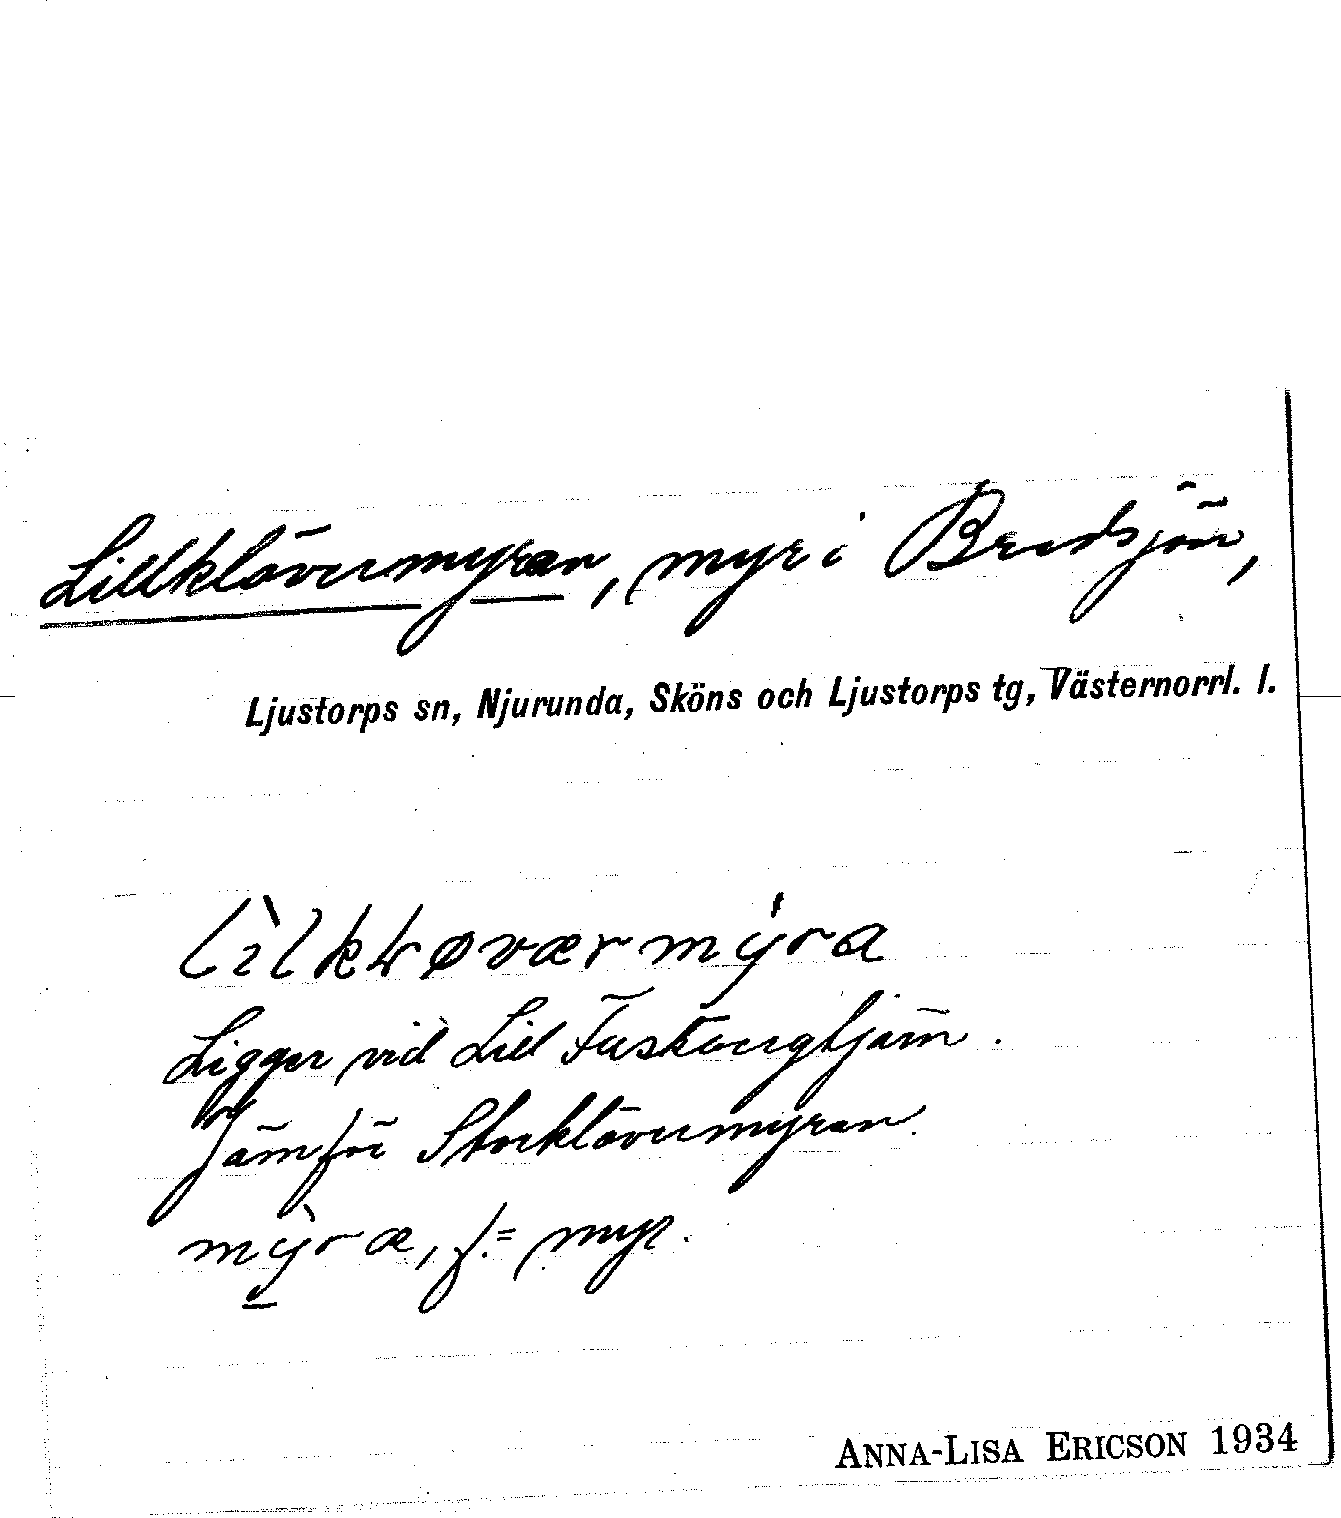 Lillklövermyran, myr i Bredsjön,
Ljustorps sn, Njurunda, Sköns och Ljustorps tg, Västernorrl. l.
Ligger vid Lill
Jämför Storklövermyran.
mỳræ, f. = myr.
ANNA-LISA ERICSON 1934